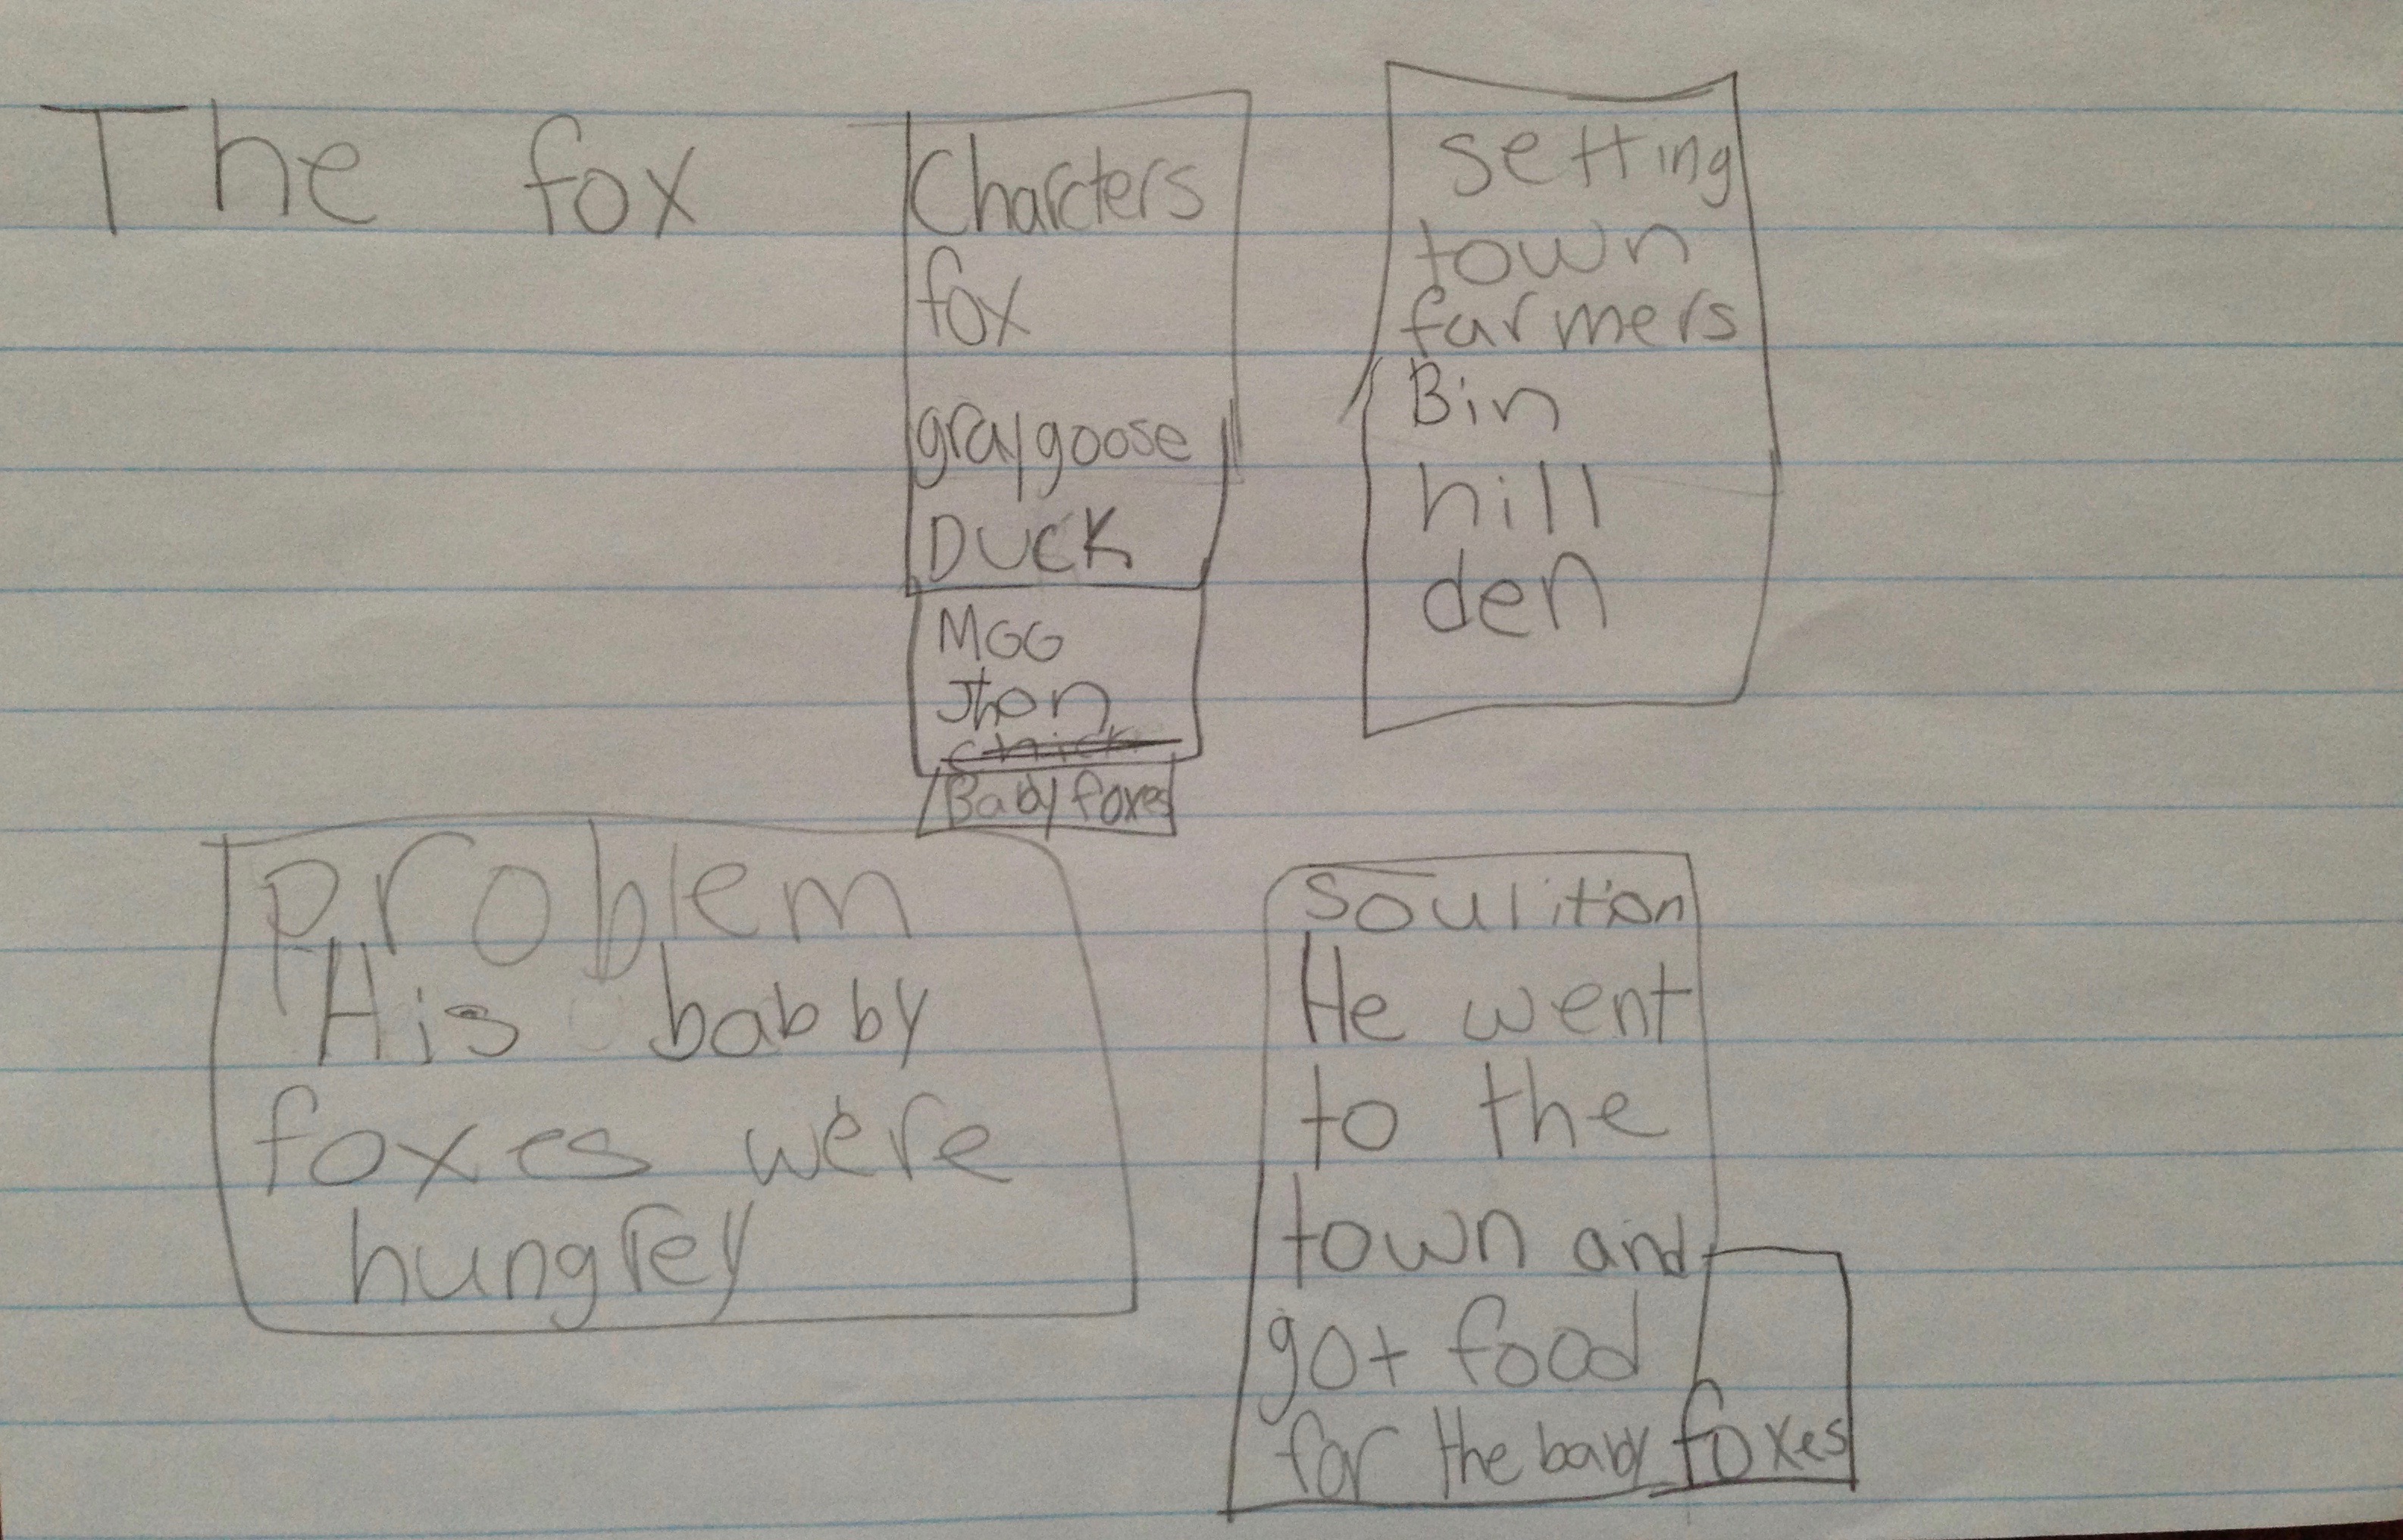 The fox
Charcters
fox
gray goose
DUCK
MGG
Jhon
chick
Baby foxes
setting
town
farmers
Bin
hill
den
problem
His babby
foxes were
hungrey
soulition
He went
to the
town and
got food
for the baby foxes